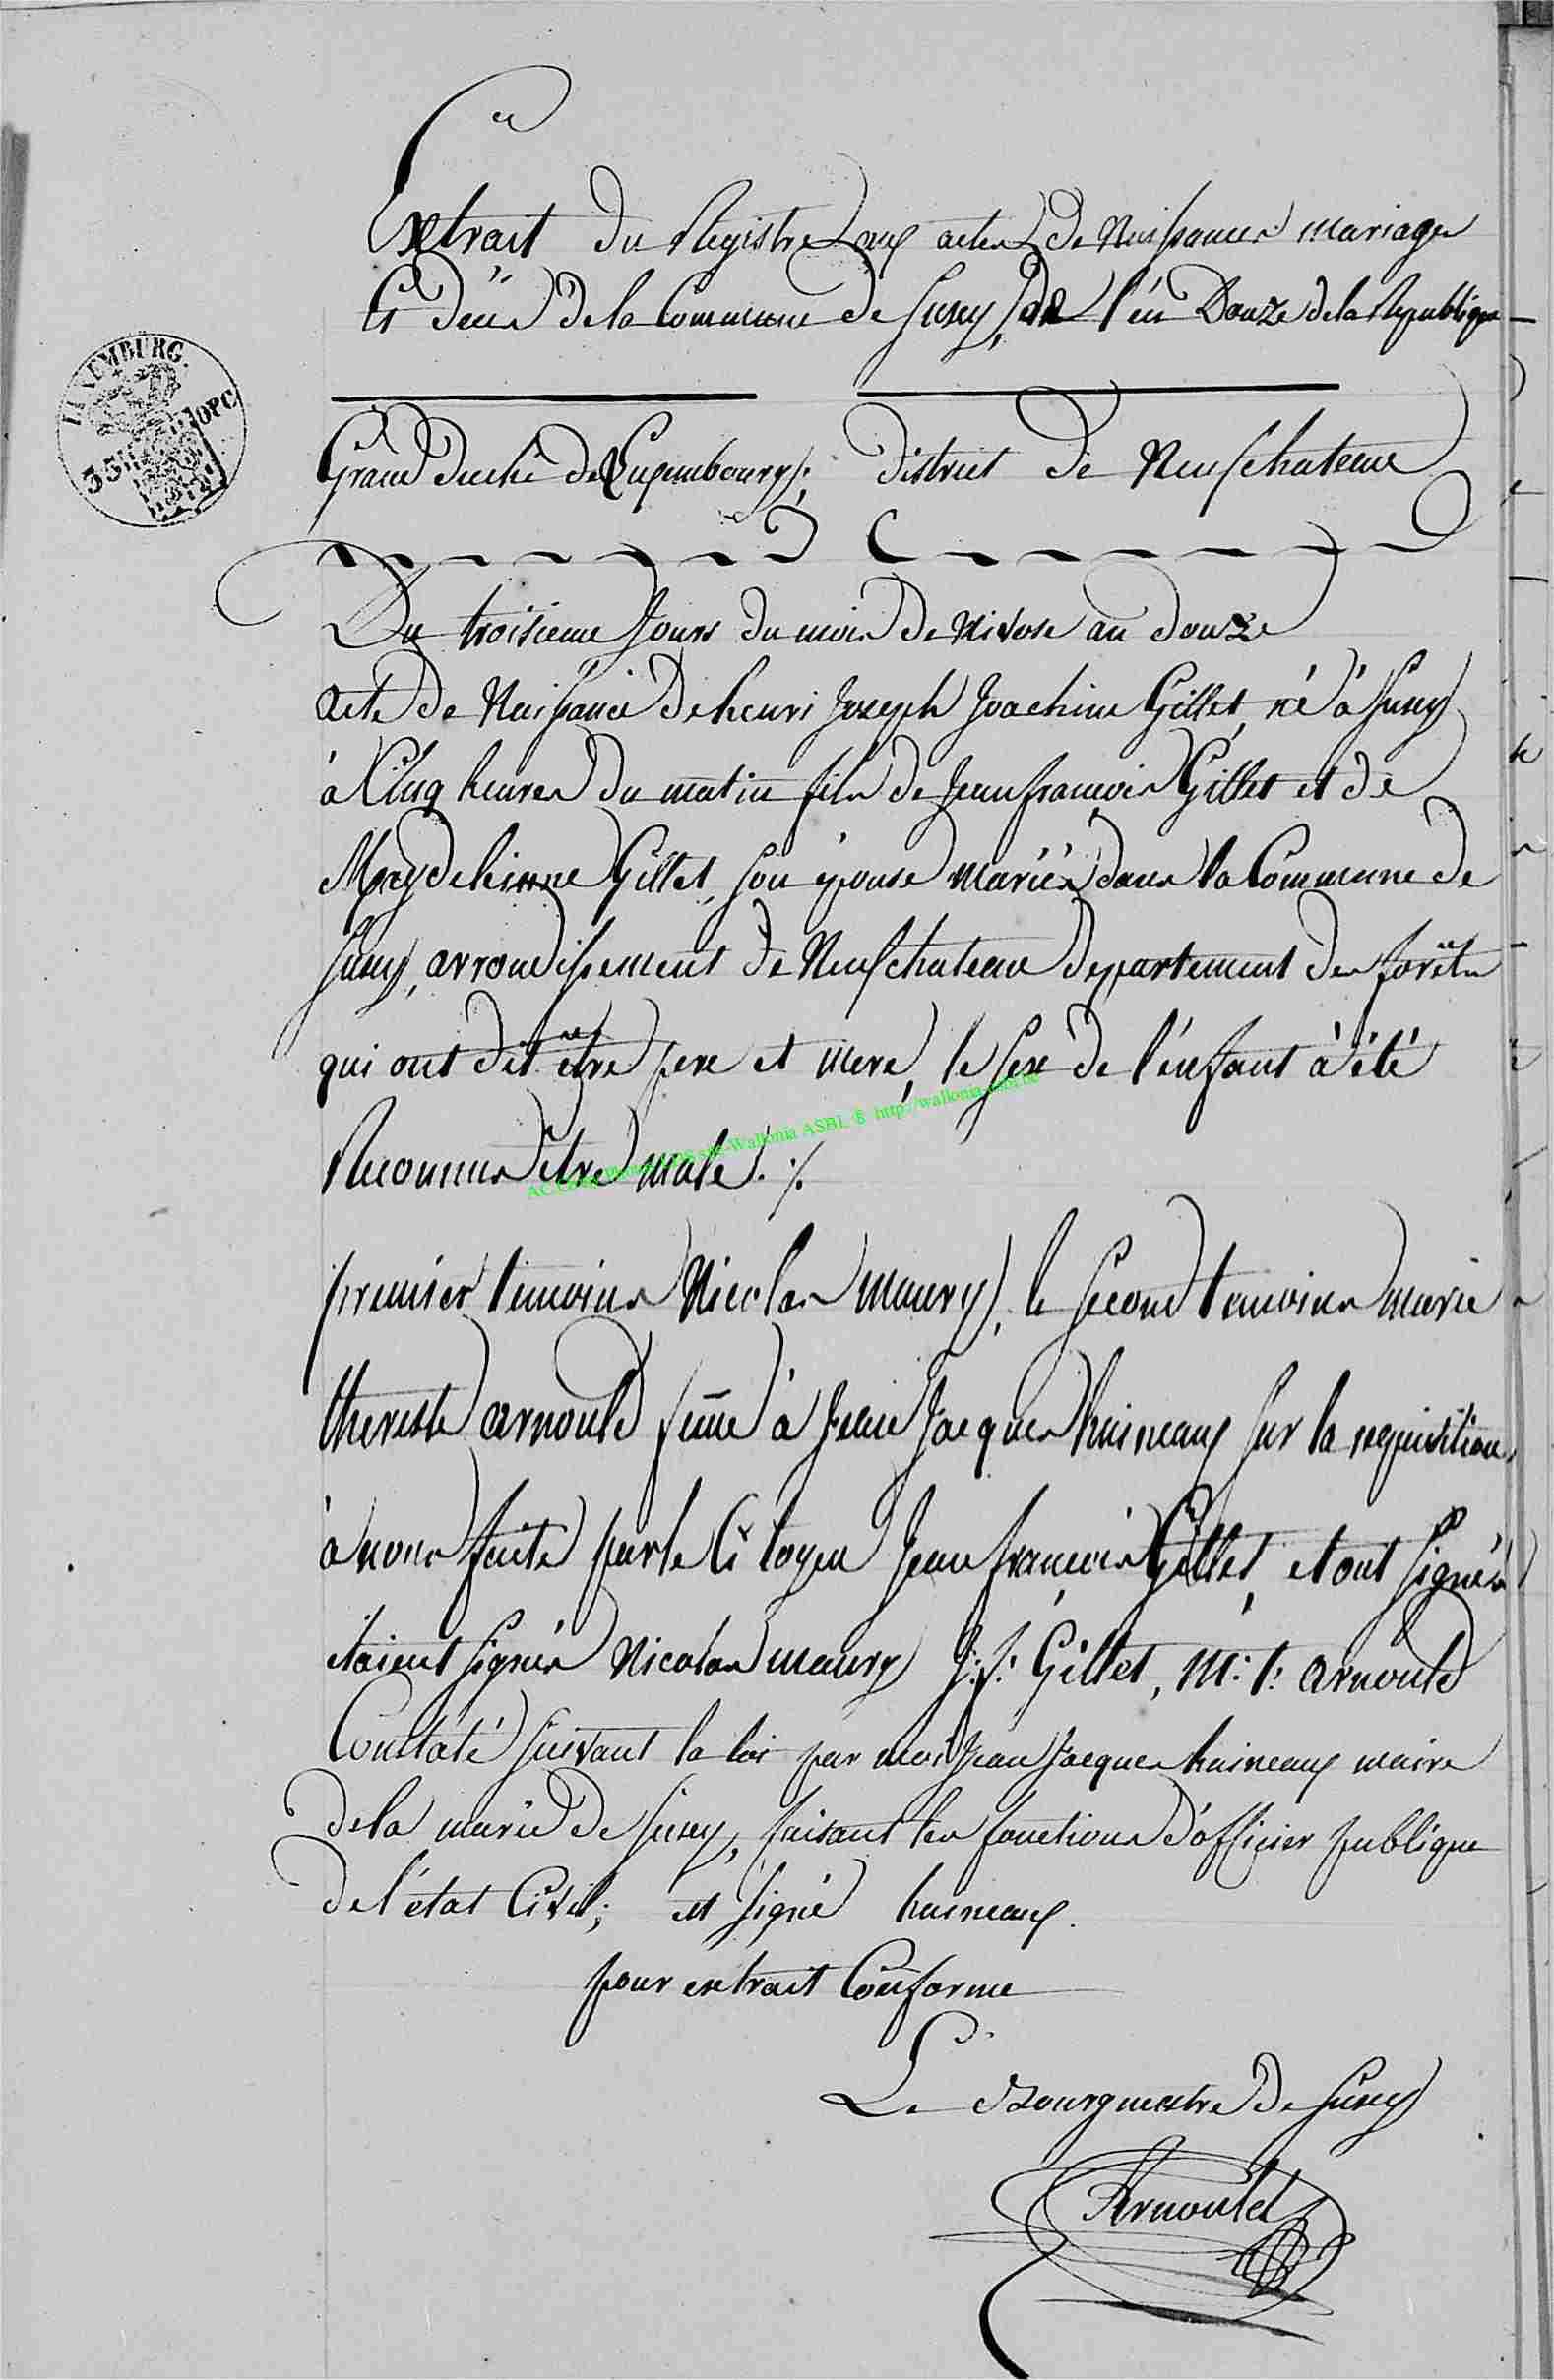 Extrait du Registre aux actes de Naissances mariages
et décès de la Commune de Suxy, de l'an Douze de la Republique
LUXEMBURG.
35 OPC
Grand duché de Luxembourg; district de Neufchateau
Du troisieme Jours du mois de Nivose an douze
acte de Naissance de henri Joseph Joachim Gillet, né à Suxy
à Cinq heures du matin fils de Jean françois Gillet et de
Gillet, son épouse mariés dans la Commune de
Suxy, arrondissement de Neufchateau departement des forêts
qui ont dit être pere et mere, le sexe de l'enfant à été
Reconnus être male ./.
premier temoins Nicolas Maury, le second temoins marie
therese arnould fme à Jean Jacques haineaux sur la requisition
à nous faite par le Citoyen Jean françois Gillet, et ont signés
étoient signés Nicolas maury J: f: Gillet, M: t: arnould
Constaté suivant la loi par moi Jean Jacques haineaux maire
de la mairie de Suxy, faisant les fonctions d'officier publique
de l'état Civil; est signé haineaux.
pour extrait Conforme
Le Bourgmestre de Suxy
Arnould